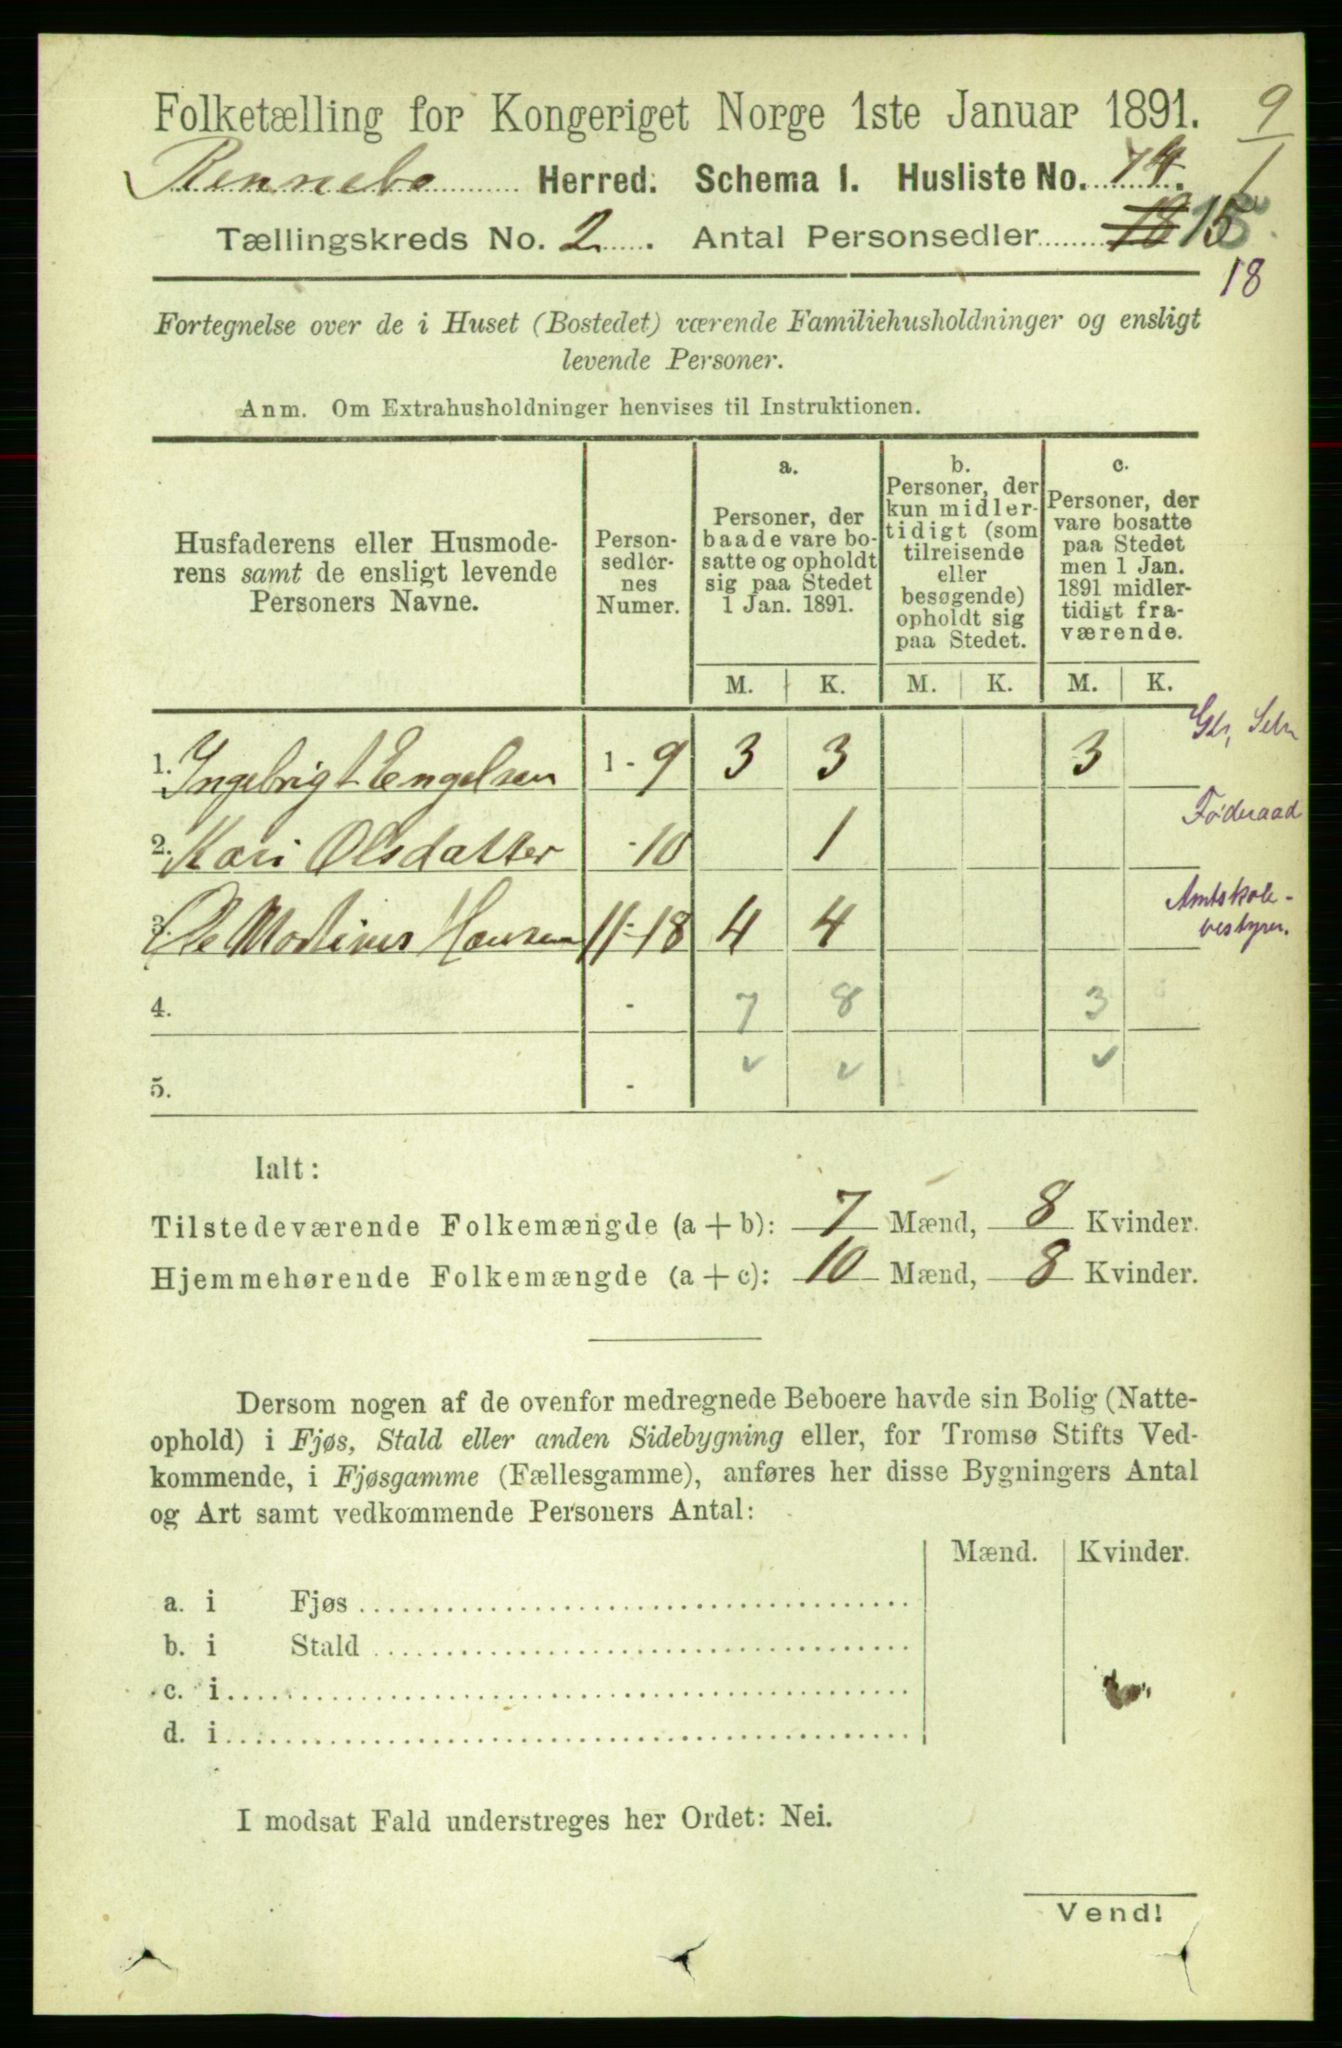 Folketælling for Kongeriget Norge 1ste Januar 1891.
9
1
Rennebo Herred. Schema 1. Husliste No. 74.
Tællingskreds No. 2. Antal Personsedler 18 15
18
Fortegnelse over de i Huset (Bostedet) værende Familiehusholdninger og ensligt
levende Personer.
Anm. Om Extrahusholdninger henvises til Instruktionen.
Husfaderens eller Husmode-
rens samt de ensligt levende
Personers Navne.
Person-
sedler-
nes
Numer.
a.
Personer, der
baade vare bo-
satte og opholdt
sig paa Stedet
1 Jan. 1891.
b.
Personer, der
kun midler-
tidigt (som
tilreisende
eller
besøgende)
opholdt sig
paa Stedet.
c.
Personer, der
vare bosatte
paa Stedet
men 1 Jan.
1891 midler-
tidigt fra-
værende.
M. K. M. K. M. K.
1. Ingebrigt Engelsen 1 - 9 3 3 3
2. Kari Olsdatter - 10 1 Føderaad
3. Ole Martinus Hansen 11-18 4 4 Amtskole-
bestyrer.
4. - 7 8 3
5. -
Ialt:
Tilstedeværende Folkemængde (a + b): 7 Mænd, 8 Kvinder.
Hjemmehørende Folkemængde (a + c): 10 Mænd, 8 Kvinder.
Dersom nogen af de ovenfor medregnede Beboere havde sin Bolig (Natte-
ophold) i Fjøs, Stald eller anden Sidebygning eller, for Tromsø Stifts Ved-
kommende, i Fjøsgamme (Fællesgamme), anføres her disse Bygningers Antal
og Art samt vedkommende Personers Antal:
Mænd. Kvinder.
a. i Fjøs
b. i Stald
c. i
d. i
I modsat Fald understreges her Ordet: Nei.
Vend!